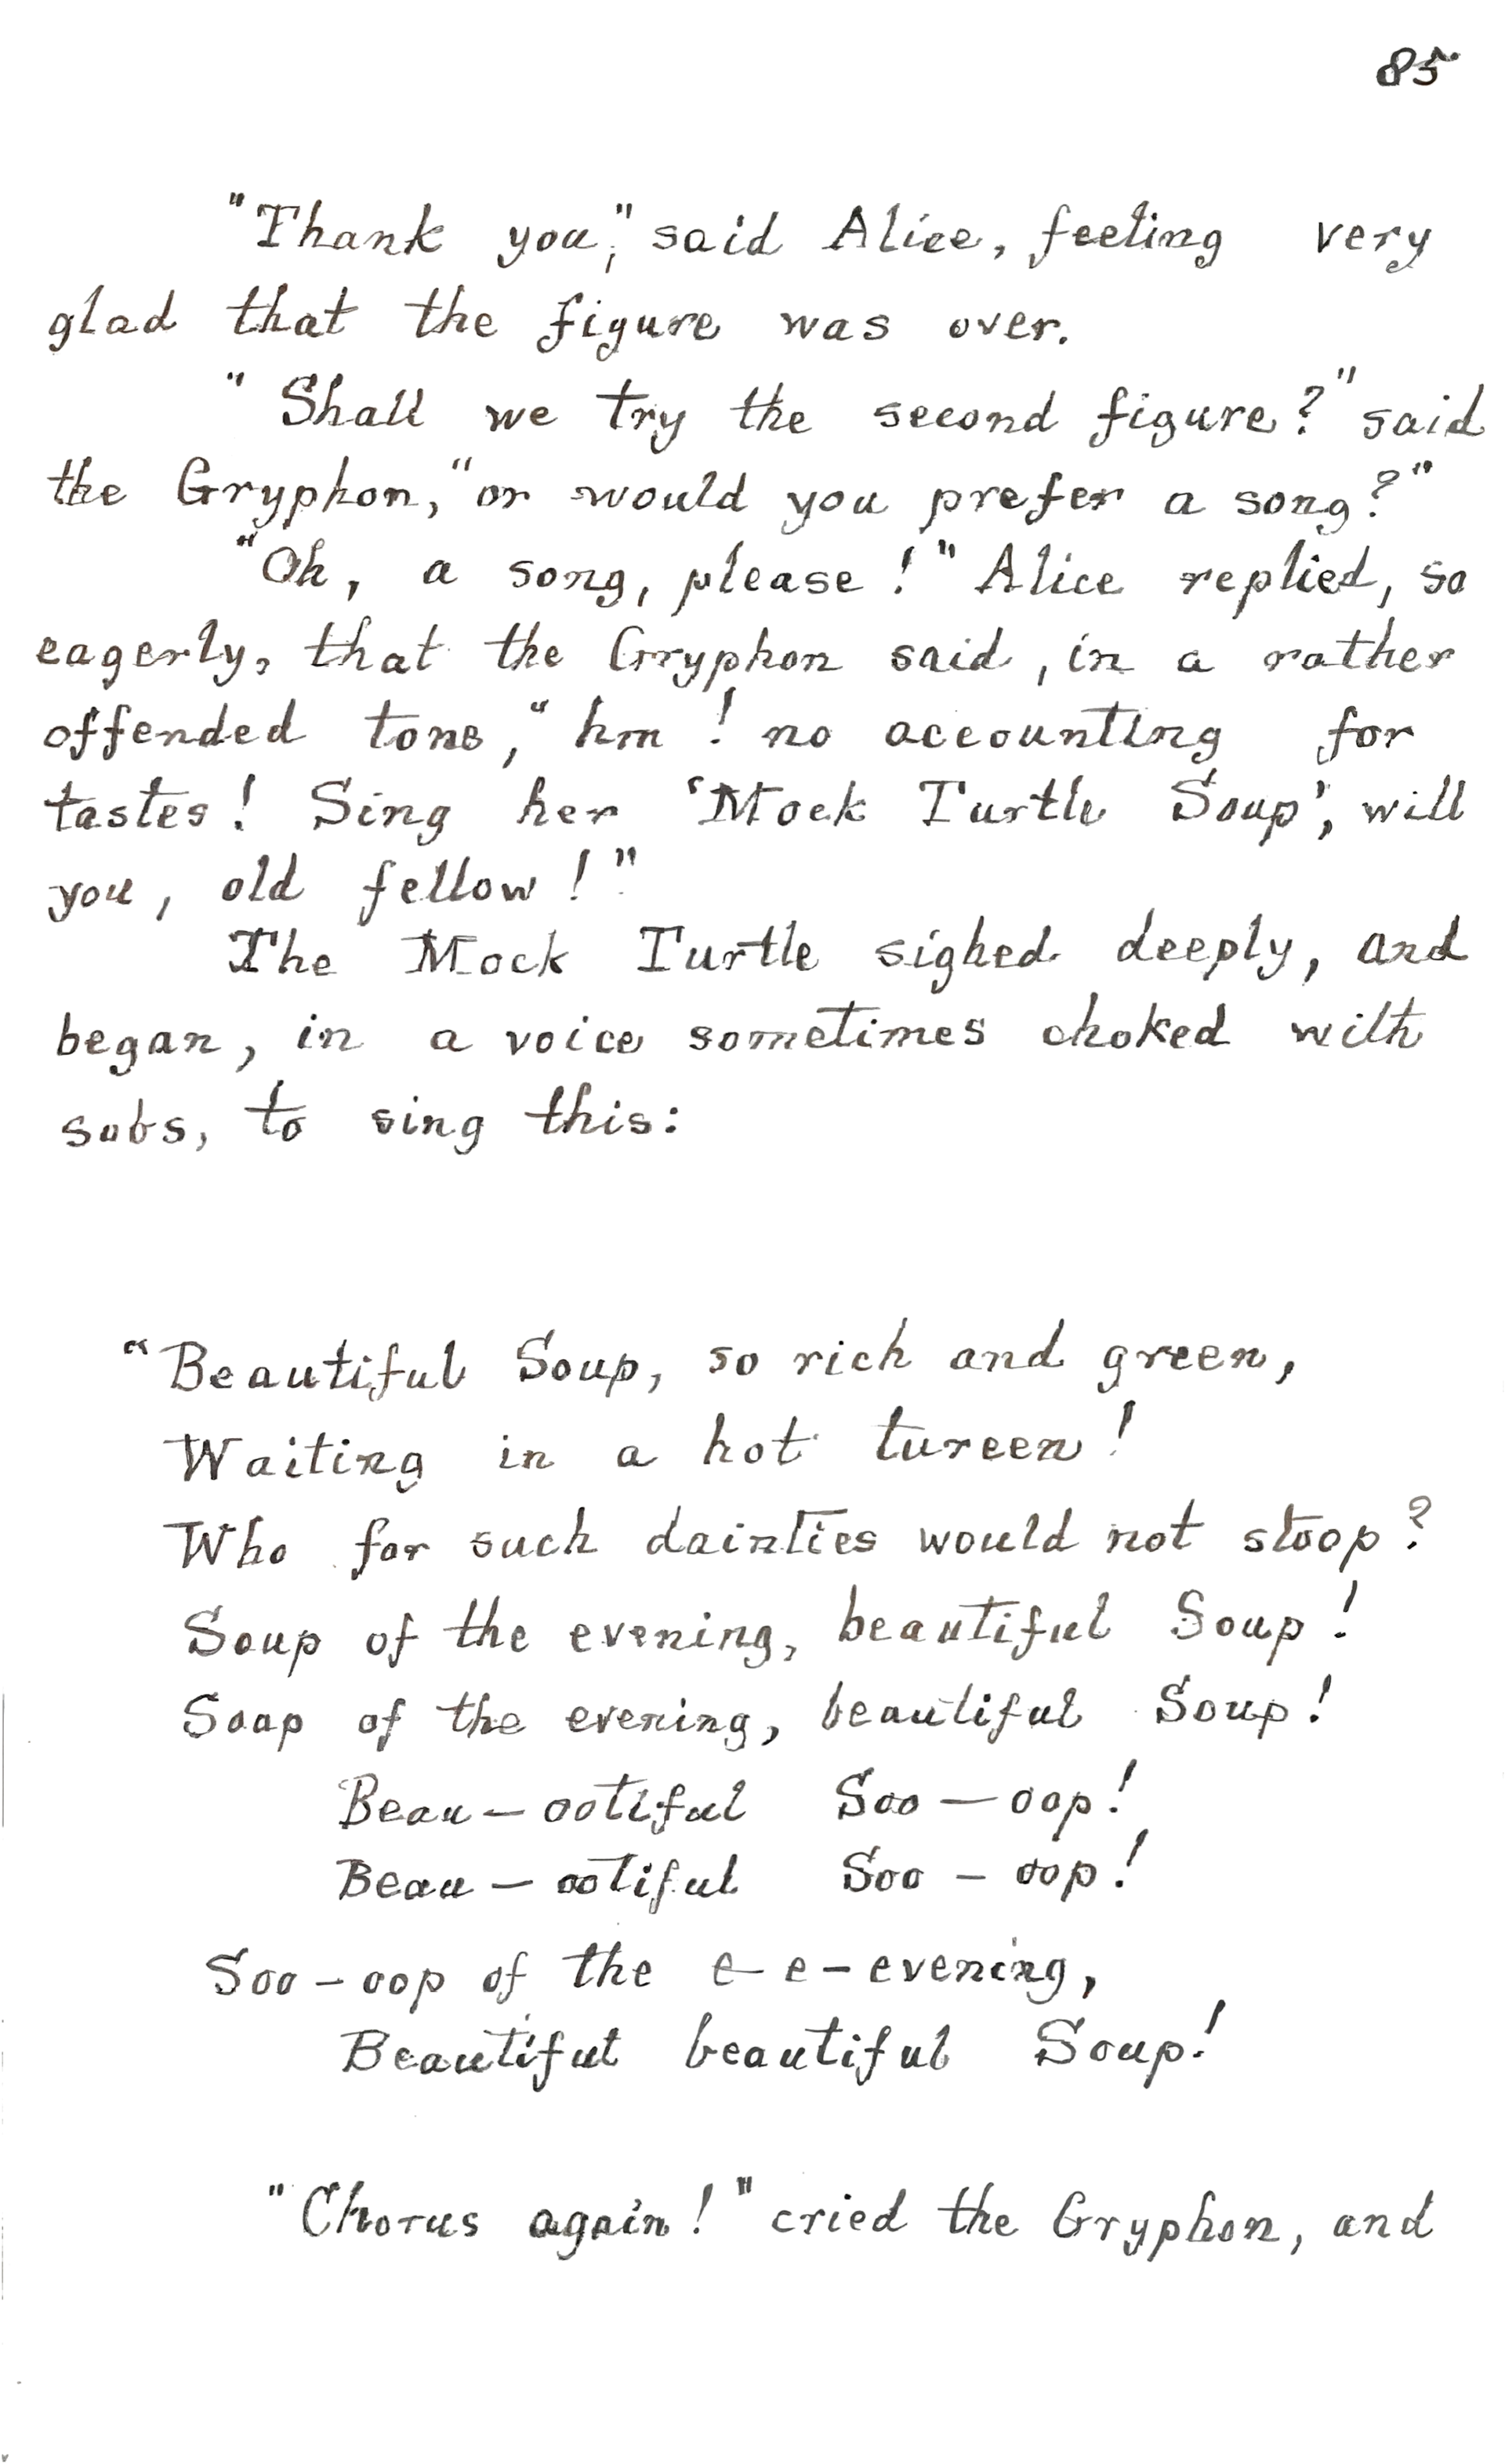 85
"Thank you," said Alice, feeling very
glad that the figure was over.
"Shall we try the second figure?" said
the Gryphon, "or would you prefer a song?"
"Oh, a song, please!" Alice replied, so
eagerly, that the Gryphon said, in a rather
offended tone, "hm! no accounting for
tastes! Sing her 'Mock Turtle Soup', will
you, old fellow!"
The Mock Turtle sighed deeply, and
began, in a voice sometimes choked with
sobs, to sing this:
"Beautiful Soup, so rich and green,
Waiting in a hot tureen!
Who for such dainties would not stoop?
Soup of the evening, beautiful Soup!
Soup of the evening, beautiful Soup!
Beau—ootiful Soo—oop!
Beau—ootiful Soo—oop!
Soo—oop of the e—e—evening,
Beautiful beautiful Soup!
"Chorus again!" cried the Gryphon, and